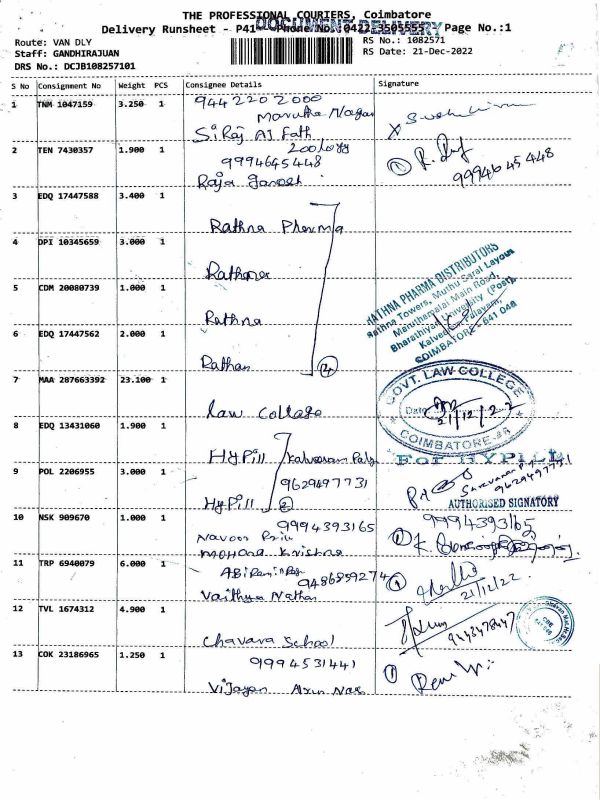 THE PROFESSIONAL COURIERS, Coimbatore
DOCUMENT DELIVERY
Delivery Runsheet - P41 - Phone No.:0422-3505555 - Page No.:1
Route: VAN DLY
RS No.: 1082571
Staff: GANDHIRAJUAN
RS Date: 21-Dec-2022
DRS No.: DCJB108257101
S No Consignment No Weight PCS Consignee Details Signature
1 TNM 1047159 3.250 1 9442202000
Marutha Nagar
Siraj Al Fath
2 TEN 7430357 1.900 1 Zoology
9994645448
Raja Ganesh
99946 45 448
3 EDQ 17447588 3.400 1
Rathna Pharma
4 DPI 10345659 3.000 1
Rathna
5 CDM 20080739 1.000 1
Rathna
RATHNA PHARMA DISTRIBUTORS
Rathna Towers, Muthu Saral Layout
Maruthamalai Main Road,
Bharathiyar University (Post),
Kalveerampalayam,
COIMBATORE - 641 046
6 EDQ 17447562 2.000 1
Rathan
4
7 MAA 287663392 23.100 1
Law Collage
GOVT. LAW COLLEGE
Date
21/12/22
COIMBATORE-46
8 EDQ 13431060 1.900 1
Hypill
For HYPILL
9 POL 2206955 3.000 1 9629497731
Hypill 2
9629497731
AUTHORISED SIGNATORY
10 NSK 909670 1.000 1 9994393165
9994393165
Mohana Krishna
11 TRP 6940079 6.000 1
9486859274
Vaithya Nathan
21/12/22
12 TVL 1674312 4.900 1
Chavara School
9443478447
13 COK 23186965 1.250 1 9994531441
Vijayan Arun Nag